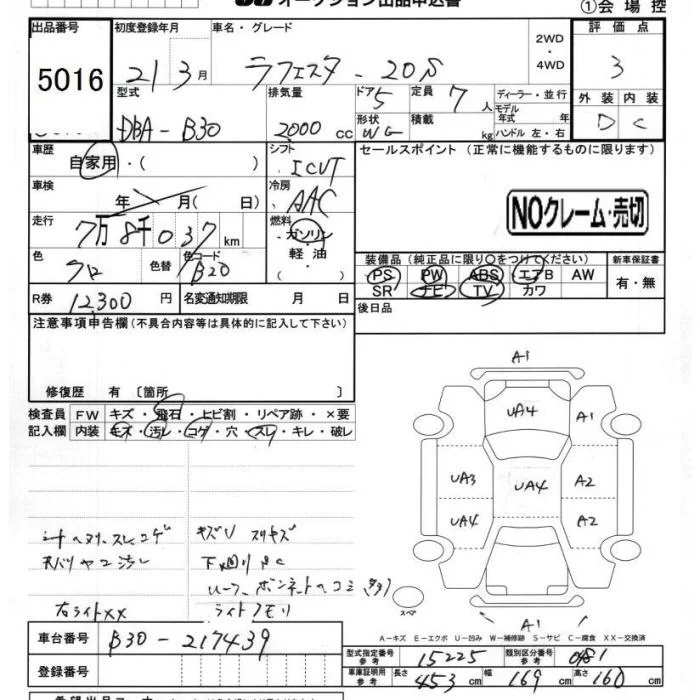 オークション出品申込書
①会場控
出品番号
5016
初度登録年月
21 3月
車名・グレード
ラフェスタ - 20S
2WD
・
4WD
評価点
3
外装 内装
D C
型式
DBA - B30
排気量
2000 cc
ドア 5
形状 WG
定員 7 人
積載 kg
ディーラー・並行
モデル
年式 年
ハンドル 左・右
車歴
自家用・( )
シフト
ICVT
車検
年 月( 日)
冷房
AAC
走行
7万8千037km
燃料
ガソリン
・
軽・油
色
クロ
色替
色コード
B20
R券
12,300 円
名変通知期限 月 日
セールスポイント (正常に機能するものに限ります)
NOクレーム・売切
装備品 (純正品に限り○をつけてください)
PS PW ABS エアB AW
SR ナビ TV カワ
新車保証書
有・無
後日品
注意事項申告欄(不具合内容等は具体的に記入して下さい)
修復歴 有 〔箇所 〕
検査員
記入欄
FW キズ・飛石・ヒビ割・リペア跡・×要
内装 キズ・汚レ・コゲ・穴・スレ・キレ・破レ
シートヘタリ、スレ、コゲ
天バリヤニ汚レ
右ライトXX
キズU スリキズ
下廻リ
ルーフ、ボンネットヘコミ(多)
ライトクモリ
A1
UA4
A1
UA3
UA4
A2
UA4
A2
A1
スペア
A－キズ E－エクボ U－凹み W－補修跡 S－サビ C－腐食 XX－交換済
車台番号
B30 - 217439
登録番号
型式指定番号
参考
15225
類別区分番号
参考
車庫証明用
参考
長さ 453 cm
幅 169 cm
高さ 160 cm